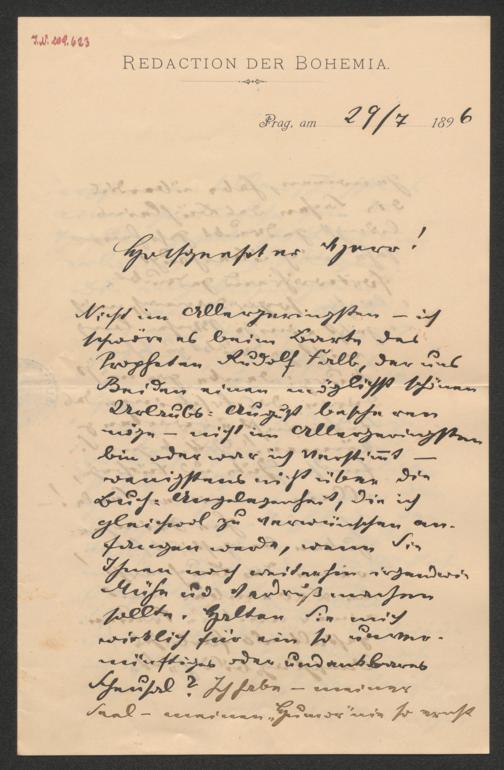 I.N. 209.623
REDACTION DER BOHEMIA.
Prag, am 29/7 1896
Hochgeehrter Herr!
Nicht im Allergeringsten – ich
schwöre es beim Barte des
Propheten Rudolf Falb, der uns
Beiden einen möglichst schönen
Urlaubs-August bescheren
möge – nicht im Allergeringsten
bin oder war ich verstimmt –
wenigstens nicht über die
Buch-Angelegenheit, die ich
gleichwol zu verwünschen an-
fangen werde, wenn sie
Ihnen noch weiterhin irgendwie
Mühe und Verdruß machen
sollte. Halten Sie mich
wirklich für ein so unver-
nünftiges oder undankbares
Scheusal? Ich habe – meiner
Seel – meinen „Humor" nie so ernst